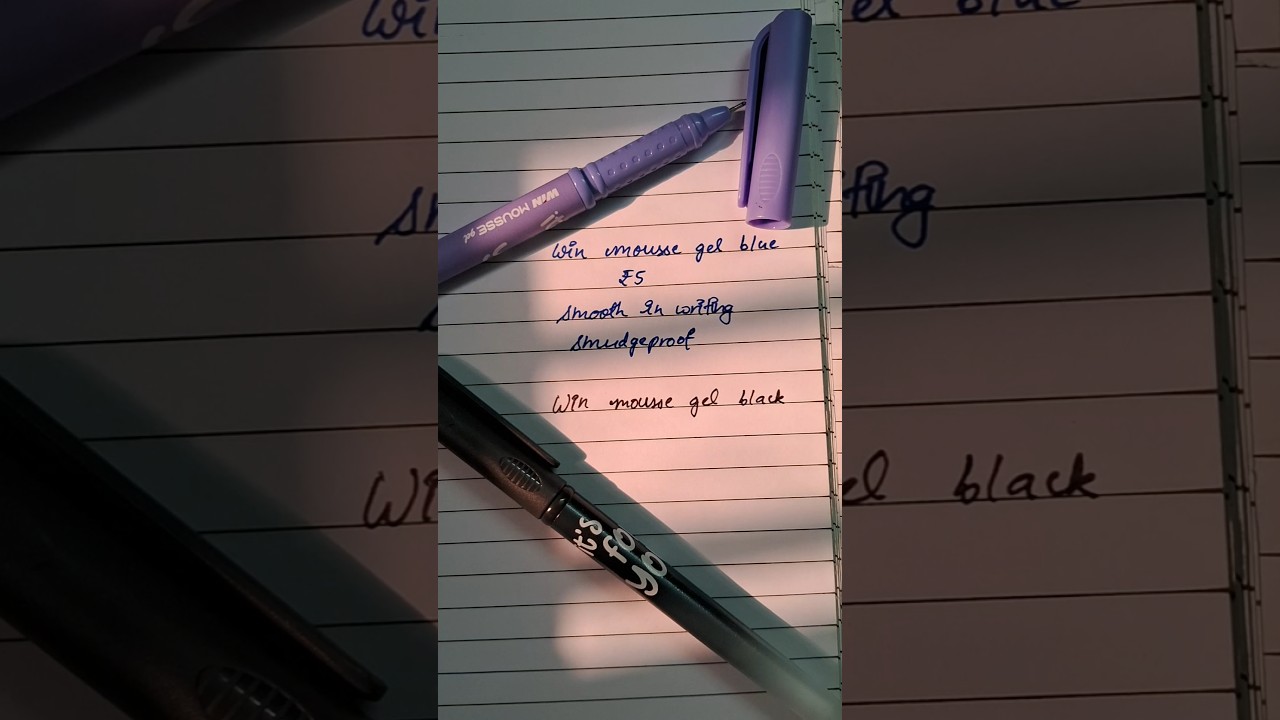 WIN MOUSSE gel
Win mousse gel blue
₹5
Smooth in writing
Smudgeproof
Win mousse gel black
It's
fo
yo